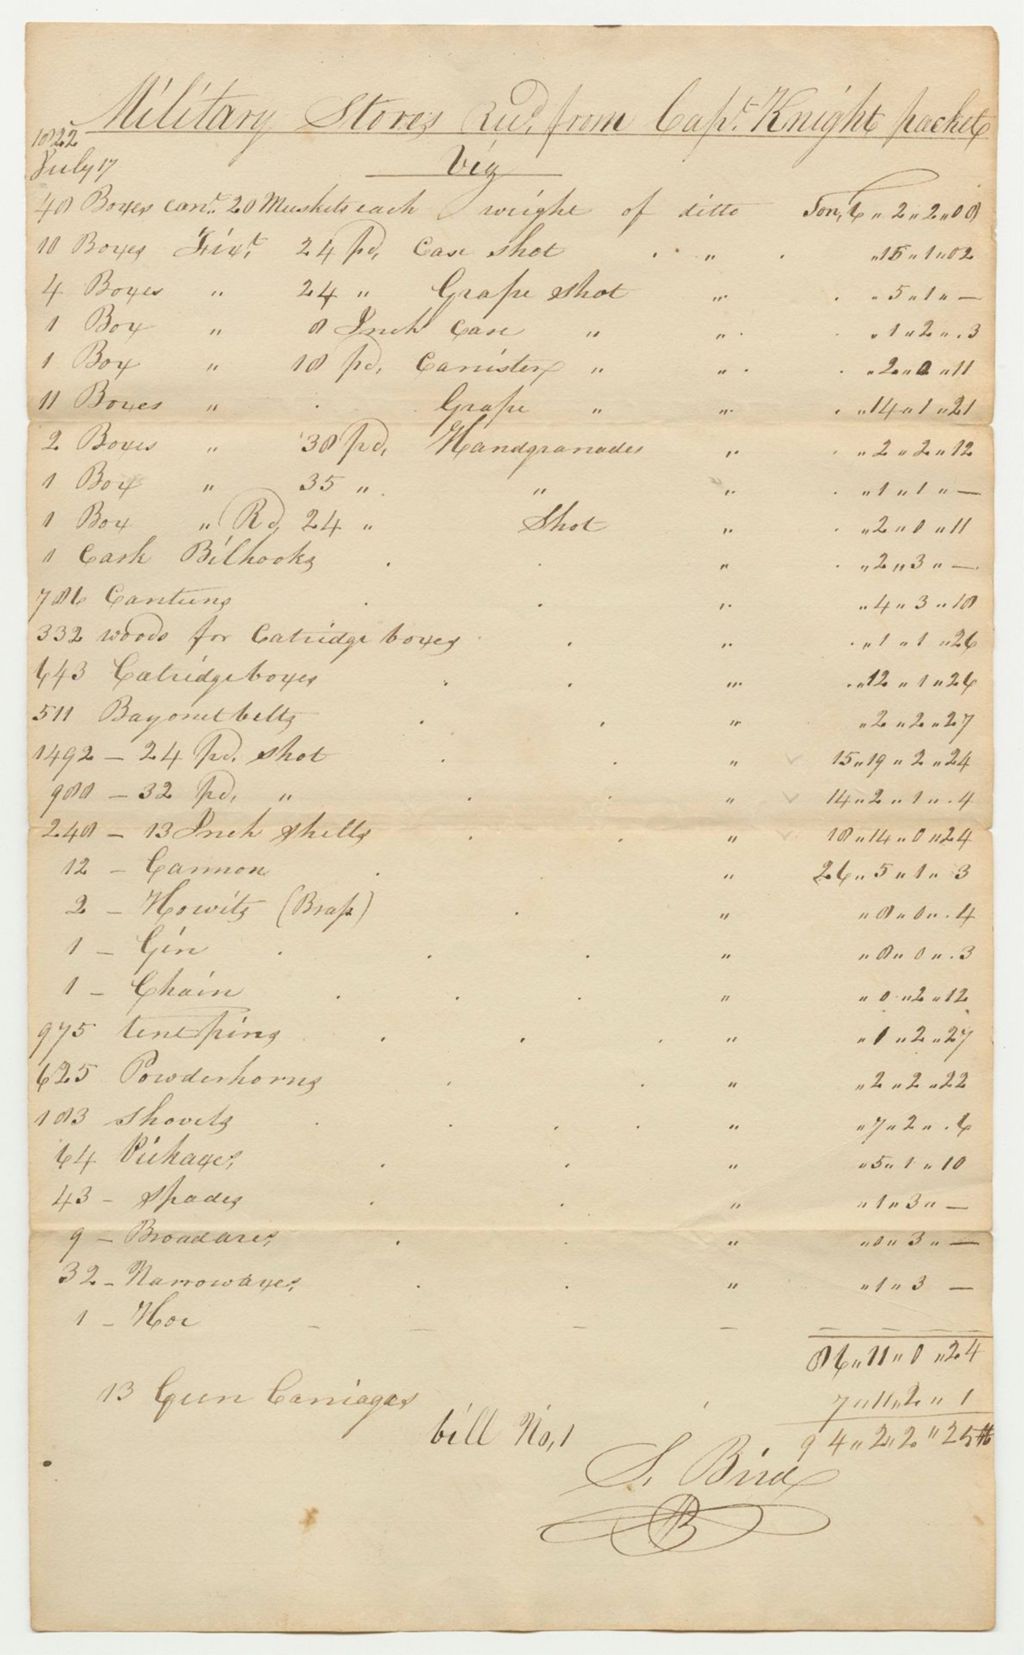 Military Stores Recd. from Capt. Knight packet
1822
July 17
Viz
40 Boxes cant. 20 Muskets each weight of ditto Ton, 6 " 2 " 2 " 08
10 Boxes Fixt. 24 pd, Case Shot " " 15 " 1 " 02
4 Boxes " 24 " Grape Shot " " 5 " 1 " —
1 Box " 8 Inch Case " " " 1 " 2 " . 3
1 Box " 18 pd, Canister " " " 2 " 0 " 11
11 Boxes " Grape " " " 14 " 1 " 21
2 Boxes " 38 pd, Handgranades " " 2 " 2 " 12
1 Box " 35 " " " " 1 " 1 " —
1 Box " Rd, 24 " Shot " " 2 " 0 " 11
1 Cask Bilhooks " " 2 " 3 " —
786 Canteens " " 4 " 3 " 18
332 woods for Catridge boxes " " 1 " 1 " 26
643 Catridgeboxes " " 12 " 1 " 26
511 Bayonetbelts " " 2 " 2 " 27
1492 — 24 pd. shot " 15 " 19 " 2 " 24
988 — 32 pd, " " 14 " 2 " 1 " . 4
248 — 13 Inch shells " 18 " 14 " 0 " 24
12 — Cannon " 26 " 5 " 1 " 3
2 — Howitz (Brass) " " 8 " 0 " . 4
1 — Gin " 8 " 0 " . 3
1 — Chain " " 0 " 2 " 12
975 tentpins " " 1 " 2 " 27
625 Powderhorns " " 2 " 2 " 22
183 Shovels " " 7 " 2 " . 6
64 Pickaxes, " " 5 " 1 " 10
43 — Spades " " 1 " 3 " —
9 — Broadaxes, " " 0 " 3 " —
32 — Narrowaxes, " " 1 " 3 —
1 — Hoe — — — —
86 " 11 " 0 " 24
13 Gun Carriages 7 " 11 " 2 " 1
bill No, 1 94 " 2 " 2 " 25 lb
S. Bird
B